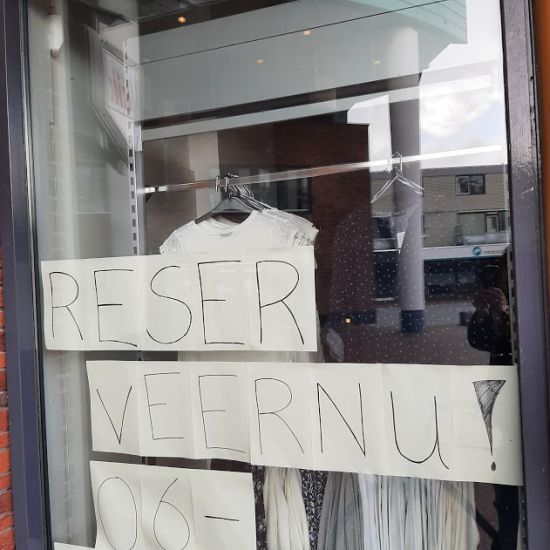 RESER
VEERNU!
06-